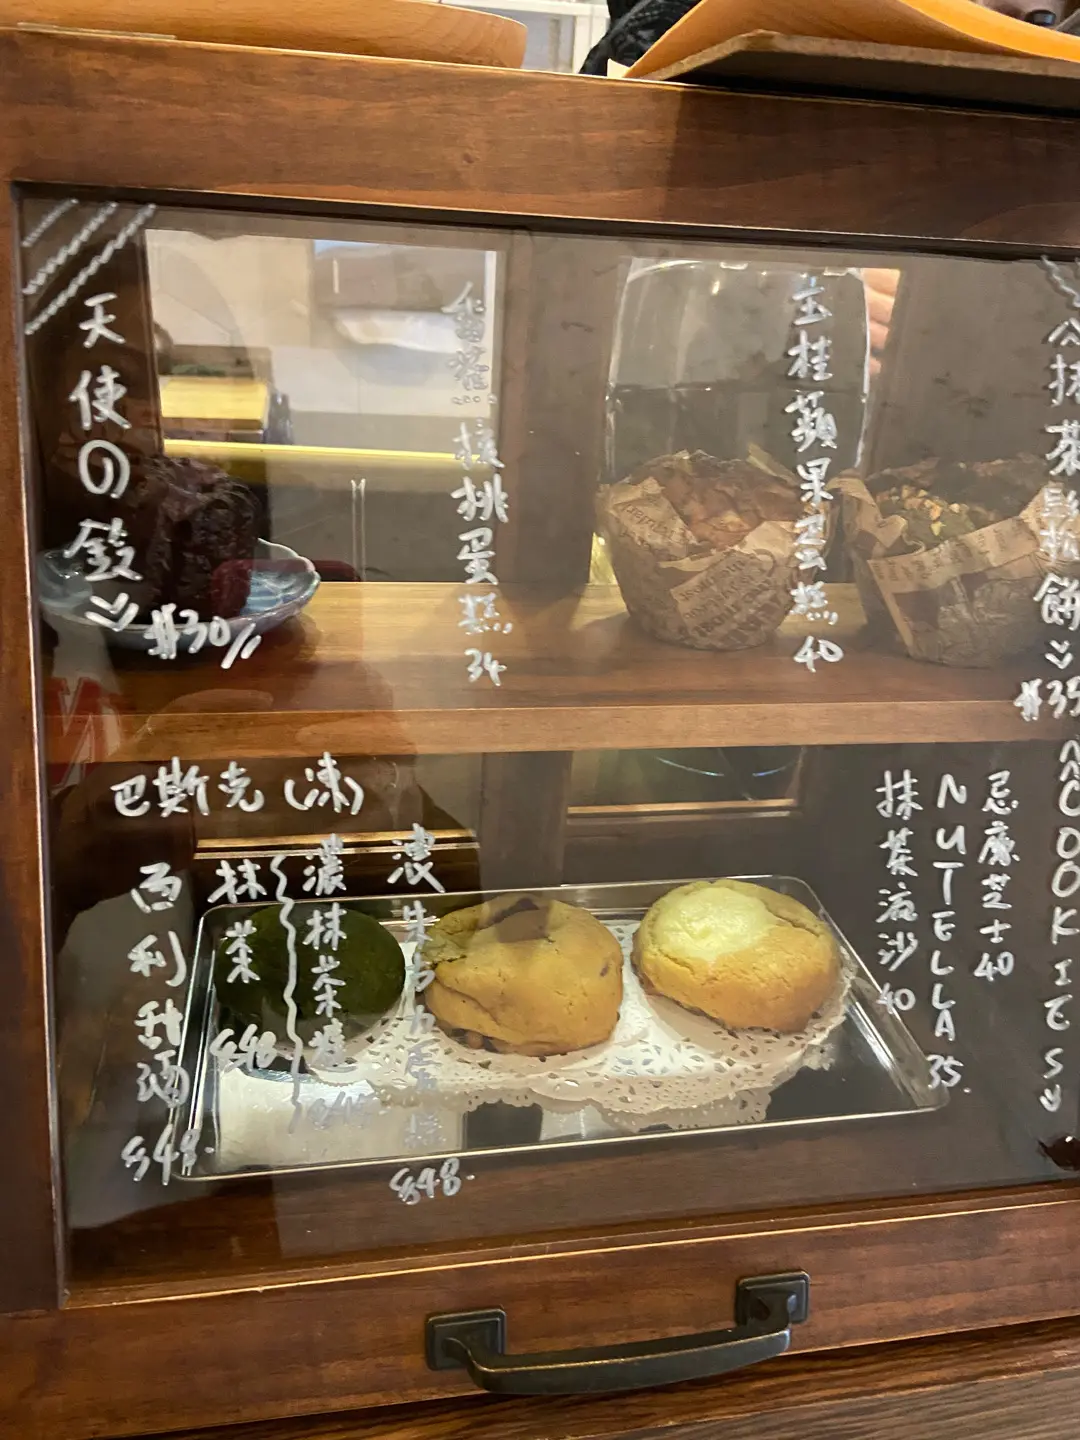 天使の鈴
$30//
核桃蛋糕
34
玉桂蘋果蛋糕
40
抹茶鬆餅
$35
巴斯克(凍)
西利甜酒
$48.
抹茶
$48
濃抹茶
濃朱古力
$48.
抹茶流沙
40
NUTELLA
35.
忌廉芝士
40
COOKIES